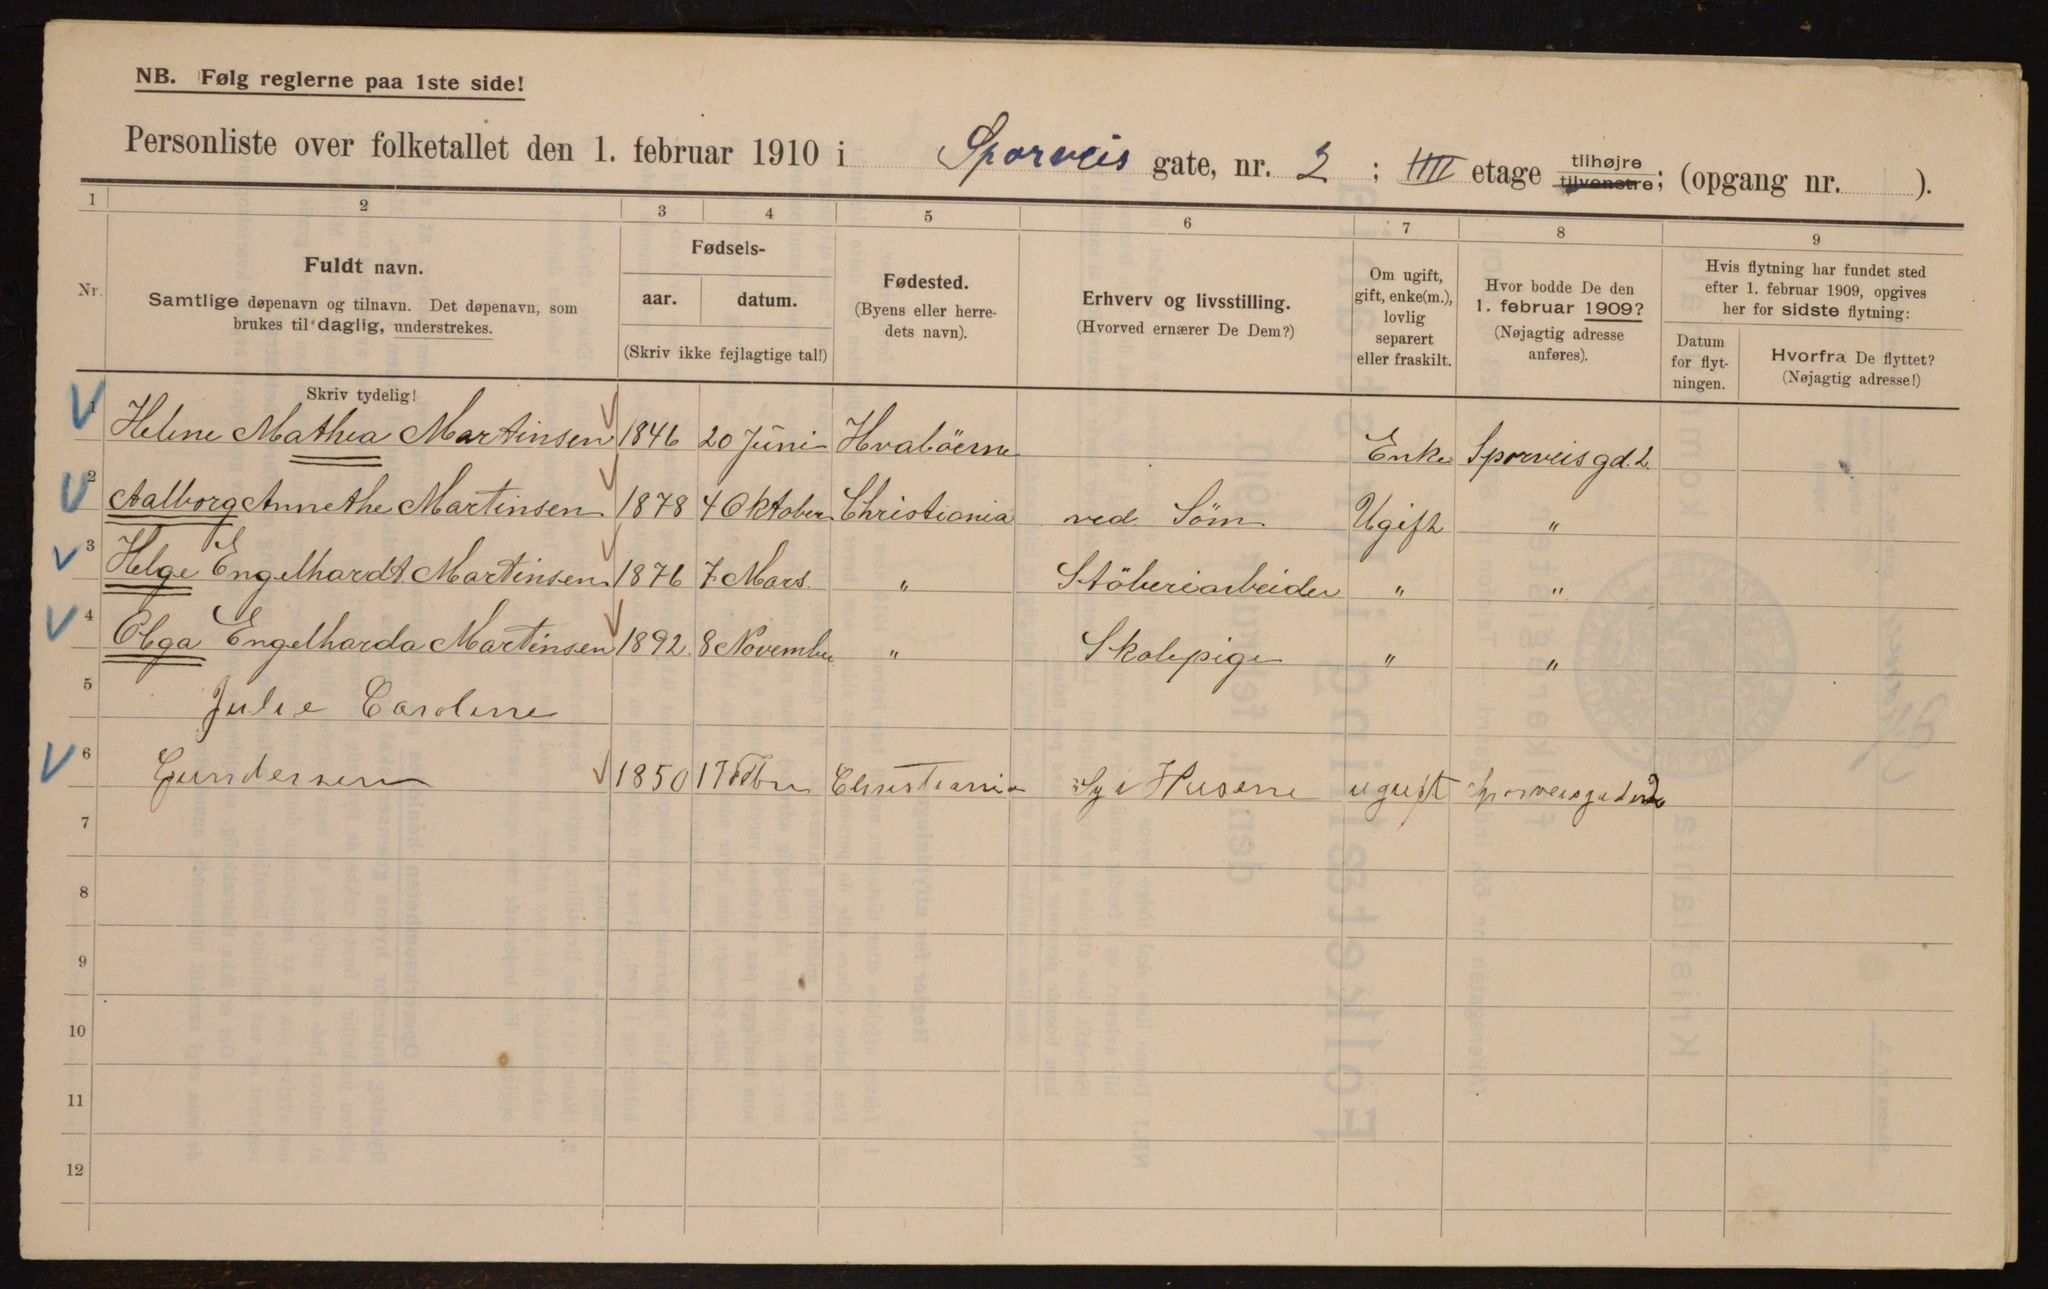 NB. Følg reglerne paa 1ste side!
Personliste over folketallet den 1. februar 1910 i Sporveis gate, nr. 2 ; IIII etage tilhøjre tilvenstre; (opgang nr. ).
1 2 3 4 5 6 7 8 9
Nr.
Fuldt navn.
Samtlige døpenavn og tilnavn. Det døpenavn, som
brukes til daglig, understrekes.
Skriv tydelig!
Fødsels-
aar. datum.
(Skriv ikke fejlagtige tal!)
Fødested.
(Byens eller herre-
dets navn).
Erhverv og livsstilling.
(Hvorved ernærer De Dem?)
Om ugift,
gift, enke(m.),
lovlig
separert
eller fraskilt.
Hvor bodde De den
1. februar 1909?
(Nøjagtig adresse
anføres).
Hvis flytning har fundet sted
efter 1. februar 1909, opgives
her for sidste flytning:
Datum
for flyt-
ningen.
Hvorfra De flyttet?
(Nøjagtig adresse!)
1 Helene Mathea Martinsen 1846 20 Juni Hvaløerne Enke Sporveisgd. 2
2 Aalborg Annethe Martinsen 1878 4 Oktober Christiania ved Söm Ugift "
3 Helge Engelhardt Martinsen 1876 7 Mars. " Stöberiarbeider " "
4 Olga Engelharda Martinsen 1892 8 November " Skolepige " "
5 Julie Caroline
6 Gundersen 1850 Christiania Sy i Husene ugift
7
8
9
10
11
12